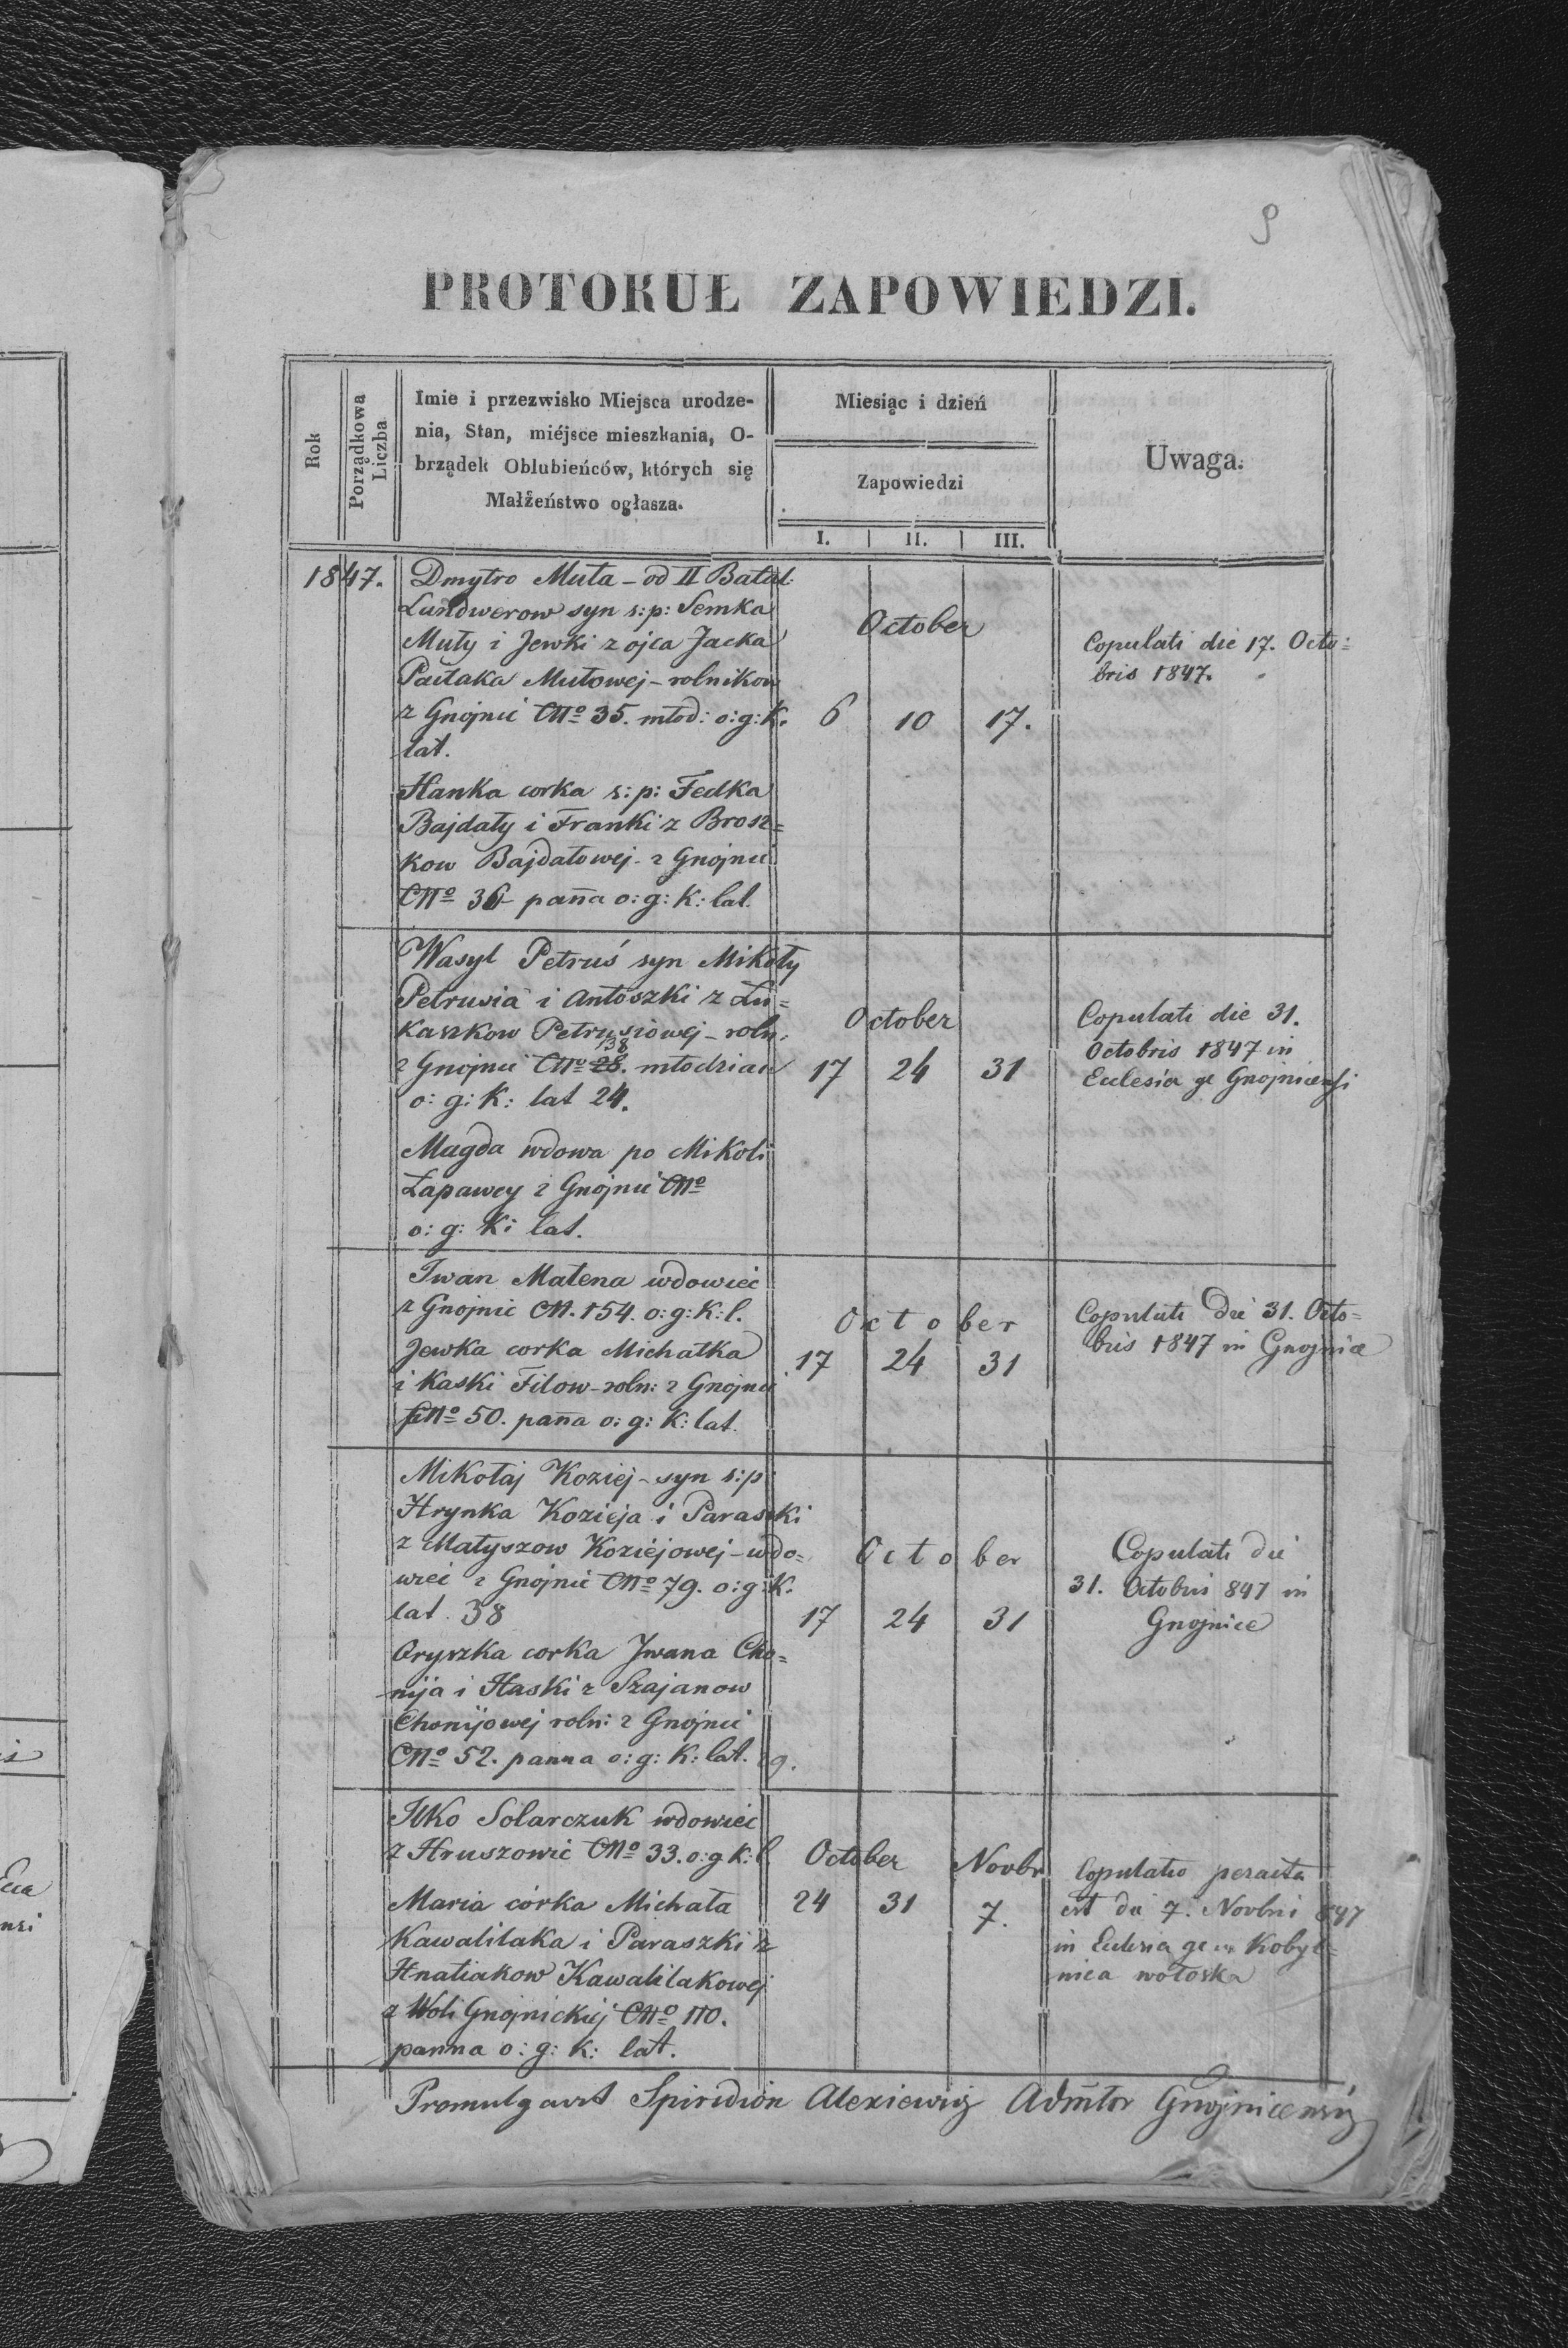 9
PROTOKUŁ ZAPOWIEDZI.
Rok
Porządkowa
Liczba
Imie i przezwisko Miejsca urodze-
nia, Stan, miéjsce mieszkania, O-
brządek Oblubieńców, których się
Małżeństwo ogłasza.
Miesiąc i dzień
Zapowiedzi
I. II. III.
Uwaga.
1847.
Dmytro Muta - od II Batal.
Landwerow syn s:p: Semka
Muty i Jewki z ojca Jacka
Mutowej - rolnikow
z Gnojnic No 35. młod: o:g:K.
lat.
Hanka corka s:p: Fedka
Bajdały i Franki z Brosz=
kow Bajdałowej z Gnojnic
No 36 - pan̄a o:g:K: lat.
October
6 10 17.
Copulati die 17. Octo=
bris 1847.
Wasyl Petruś syn Mikoły
Petrusia i Antoszki z Łu=
kaszkow Petrusiowej - roln:
138
z Gnojnic No 28. młodzian
o: g: K: lat 24.
Magda wdowa po Mikoli
Łapawey z Gnojnic No
o: g: K: lat.
October
17 24 31
Copulati die 31.
Octobris 1847 in
Ecclesia gc Gnojnicensi
Iwan Matena wdowiec
z Gnojnic N. 154. o:g:K:l.
Jewka corka Michałka
i Kaski Filow - roln: z Gnojnic
No 50. pan̄a o: g: K: lat.
October
17 24 31
Copulati die 31. Octo=
bris 1847 in Gnojnice
Mikołaj Koziej - syn s:p:
Hrynka Kozieja i Paraski
z Matyszow Koziejowej - wdo=
wiec z Gnojnic No 79. o:g:K.
lat 38
Oryszka corka Jwana Cho=
nija i Haski z Szajanow
Chonijowej roln: z Gnojnic
No 52. panna o: g: K: lat. 29.
October
17 24 31
Copulati die
31. Octobris 847 in
Gnojnice
Ilko Solarczuk wdowiec
z Hruszowic No 33. o:g K: l.
Maria córka Michała
Kawalilaka i Paraszki z
Hnatiakow Kawalilakowej
z Woli Gnojnickiej No 110.
panna o: g: K: lat.
October Novbr
24 31 7.
Copulatio peracta
est die 7. Novbris 847
in Ecclesia gc in Kobyl=
nica wołoska
Promulgavit Spiridion Alexiewicz Admtor Gnojnicensis